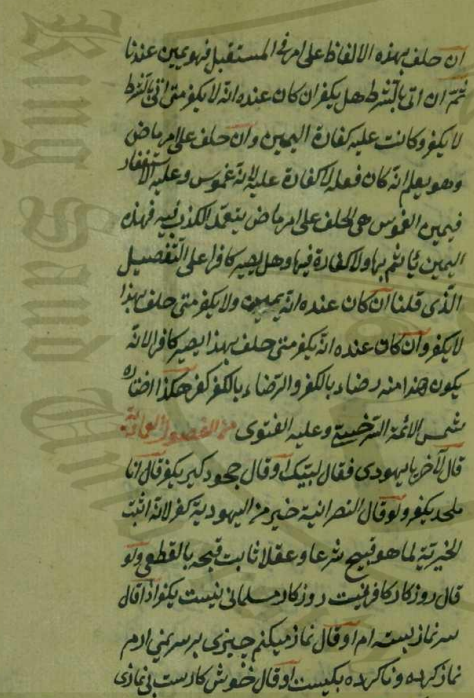 ان حلف بهذه الالفاظ على امر فى المستقبل فهو يمين عندنا
ثم ان اتى بالشرط هل يكفر ان كان عنده انه لا يكفر متى اتى بالشرط
لا يكفر وكانت عليه كفارة اليمين وان حلف على امر ماض
وهو يعلم انه كان فعله لا كفارة عليه لانه غموس وعليه الاستغفار
فيمين الغموس هى الحلف على امر ماض يتعمد الكذب فيه فهذه
اليمين يأثم بها ولا كفارة فيها وهل يصير كافرا على التفصيل
الذى قلنا ان كان عنده انه يمين ولا يكفر متى حلف بهذا
لا يكفر وان كان عنده انه يكفر متى حلف بهذا يصير كافرا لانه
يكون هذا منه رضاء بالكفر والرضاء بالكفر كفر هكذا اختاره
شمس الائمة السرخسى وعليه الفتوى من الفصول
قال لآخر يا يهودى فقال لبيك او قال جحود كير يكفر قال انا
ملحد يكفر ولو قال النصرانية خير من اليهودية كفر لانه اثبت
الخيرية لما هو قبيح شرعا وعقلا ثابت قبحه بالقطعى ولو
قال روزكار كافريست روزكار مسلمانى نيست يكفر اذا قال
سر نماز بسته ام او قال نماز ميكنم چيزى بر سر نمى ارم
نماز كرده وناكرده يكيست او قال خوش كاريست بى نمازى